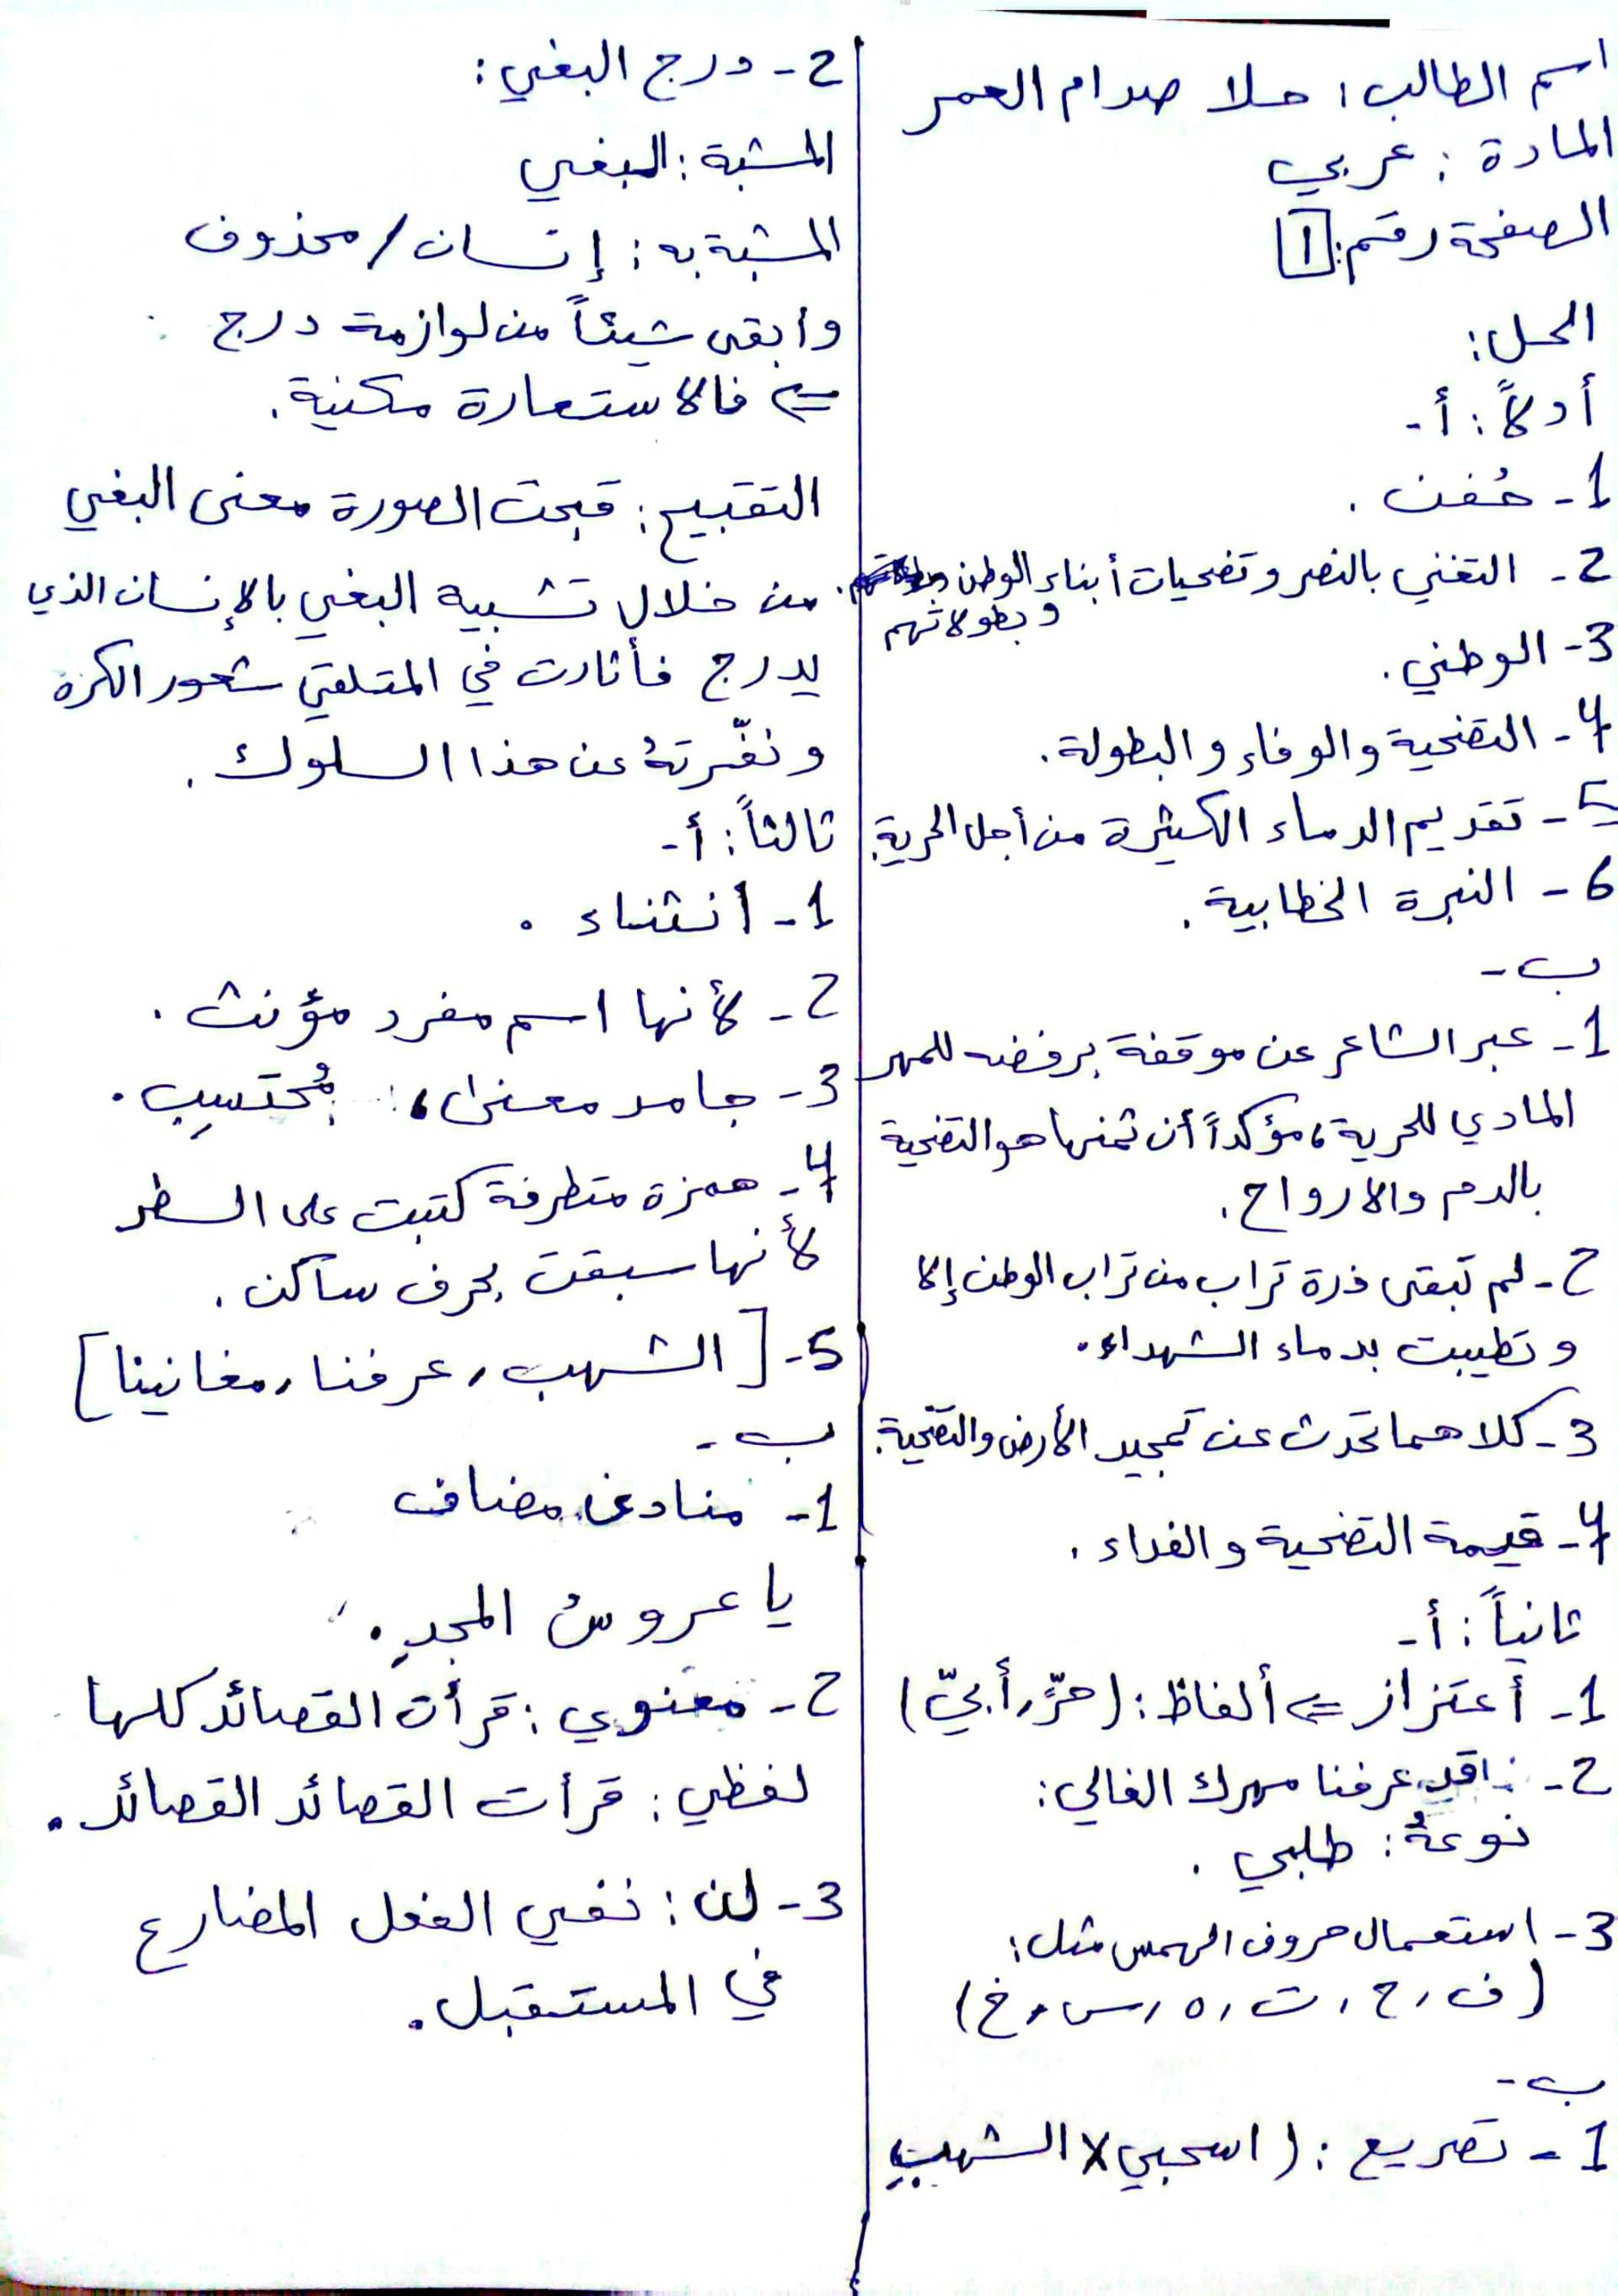 اسم الطالب: حلا صدام العمر
المادة: عربي
الصفحة رقم: 1
الحل:
أولاً: أ-
1- حُفن.
2- التغني بالنصر وتضحيات أبناء الوطن
وبطولاتهم
3- الوطني.
4- التضحية والوفاء والبطولة.
5- تقديم الدماء الكثيرة من أجل الحرية.
6- النبرة الخطابية.
ب-
1- عبر الشاعر عن موقفة برفضه للمهر
المادي للحرية، مؤكداً أن ثمنها هو التضحية
بالدم والارواح.
2- لم تبقى ذرة تراب من تراب الوطن إلا
وتطيبت بدماء الشهداء.
3- كلاهما تحدث عن تمجيد الأرض والتضحية.
4- قيمة التضحية والفداء.
ثانياً: أ-
1- أعتزاز ⇐ ألفاظ: (حرٍّ، أبيّ)
2- قد عرفنا مهرك الغالي:
نوعهُ: طلبي.
3- استعمال حروف الهمس مثل:
(ف، ح، ت، ه، س، خ)
ب-
1- تصريع: (اسحبي x الشهبِ
2- درج البغي:
المشبة: البغي
المشبة به: إنسان / محذوف
وأبقى شيئاً من لوازمة درج
⇐ فالاستعارة مكنية.
التقبيح: قبحت الصورة معنى البغي
من خلال تشبيه البغي بالإنسان الذي
يدرج فأثارت في المتلقي شعور الكره
ونفّرتهُ عن هذا السلوك.
ثالثاً: أ-
1- انثناء.
2- لأنها اسم مفرد مؤنث.
3- جامد معنى، مُحتسِب.
4- همزة متطرفة كتبت على السطر
لأنها سبقت بحرف ساكن.
5- [الشهب، عرفنا، مغانينا]
ب-
1- منادى مضاف
يا عروسُ المجدِ.
2- معنوي: قرأت القصائد كلها
لفظي: قرأت القصائد القصائد.
3- لن: نفي الفعل المضارع
في المستقبل.